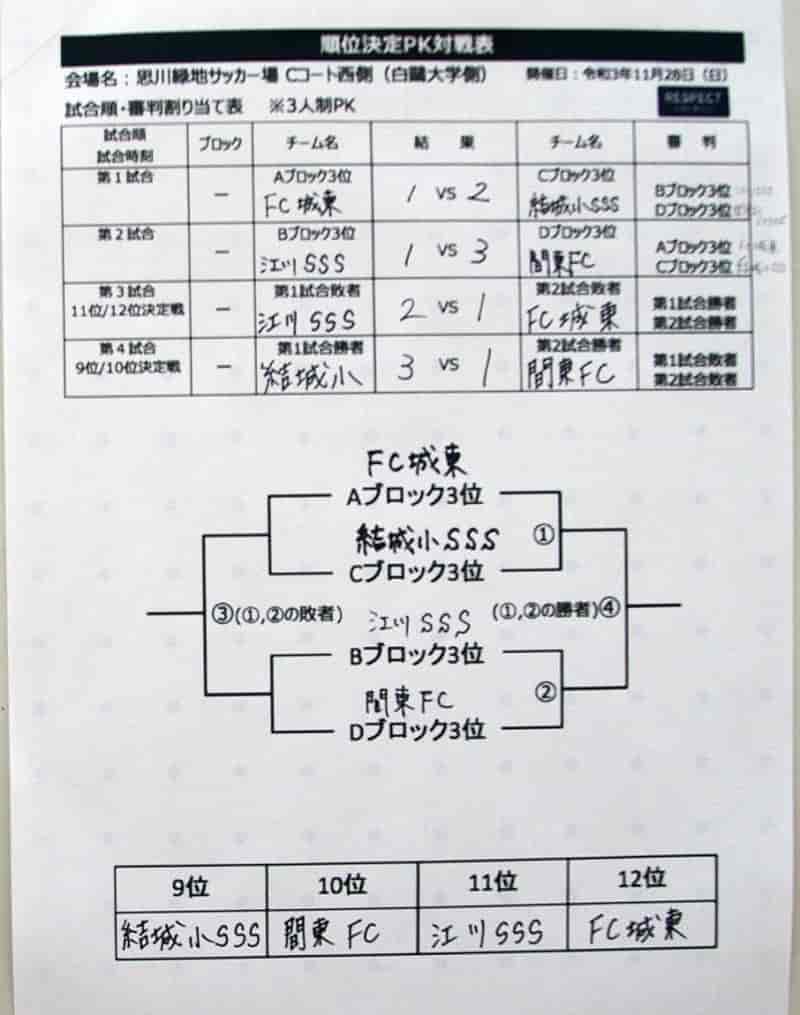 順位決定PK対戦表
会場名：思川緑地サッカー場 Cコート西側（白鷗大学側） 開催日：令和3年11月28日（日）
試合順・審判割り当て表 ※3人制PK
RESPECT
試合順 試合時刻 ブロック チーム名 結 果 チーム名 審 判
第1試合 ー Aブロック3位 Cブロック3位
FC城東 1 VS 2 結城小SSS Bブロック3位
Dブロック3位
第2試合 ー Bブロック3位 Dブロック3位
江川SSS 1 VS 3 間東FC Aブロック3位
Cブロック3位
第3試合 第1試合敗者 第2試合敗者
11位/12位決定戦 ー 江川SSS 2 VS 1 FC城東 第1試合勝者
第2試合勝者
第4試合 第1試合勝者 第2試合勝者
9位/10位決定戦 ー 結城小 3 VS 1 間東FC 第1試合敗者
第2試合敗者
FC城東
Aブロック3位
結城小SSS ①
Cブロック3位
③(①,②の敗者) 江川SSS (①,②の勝者)④
Bブロック3位
間東FC ②
Dブロック3位
9位 10位 11位 12位
結城小SSS 間東FC 江川SSS FC城東